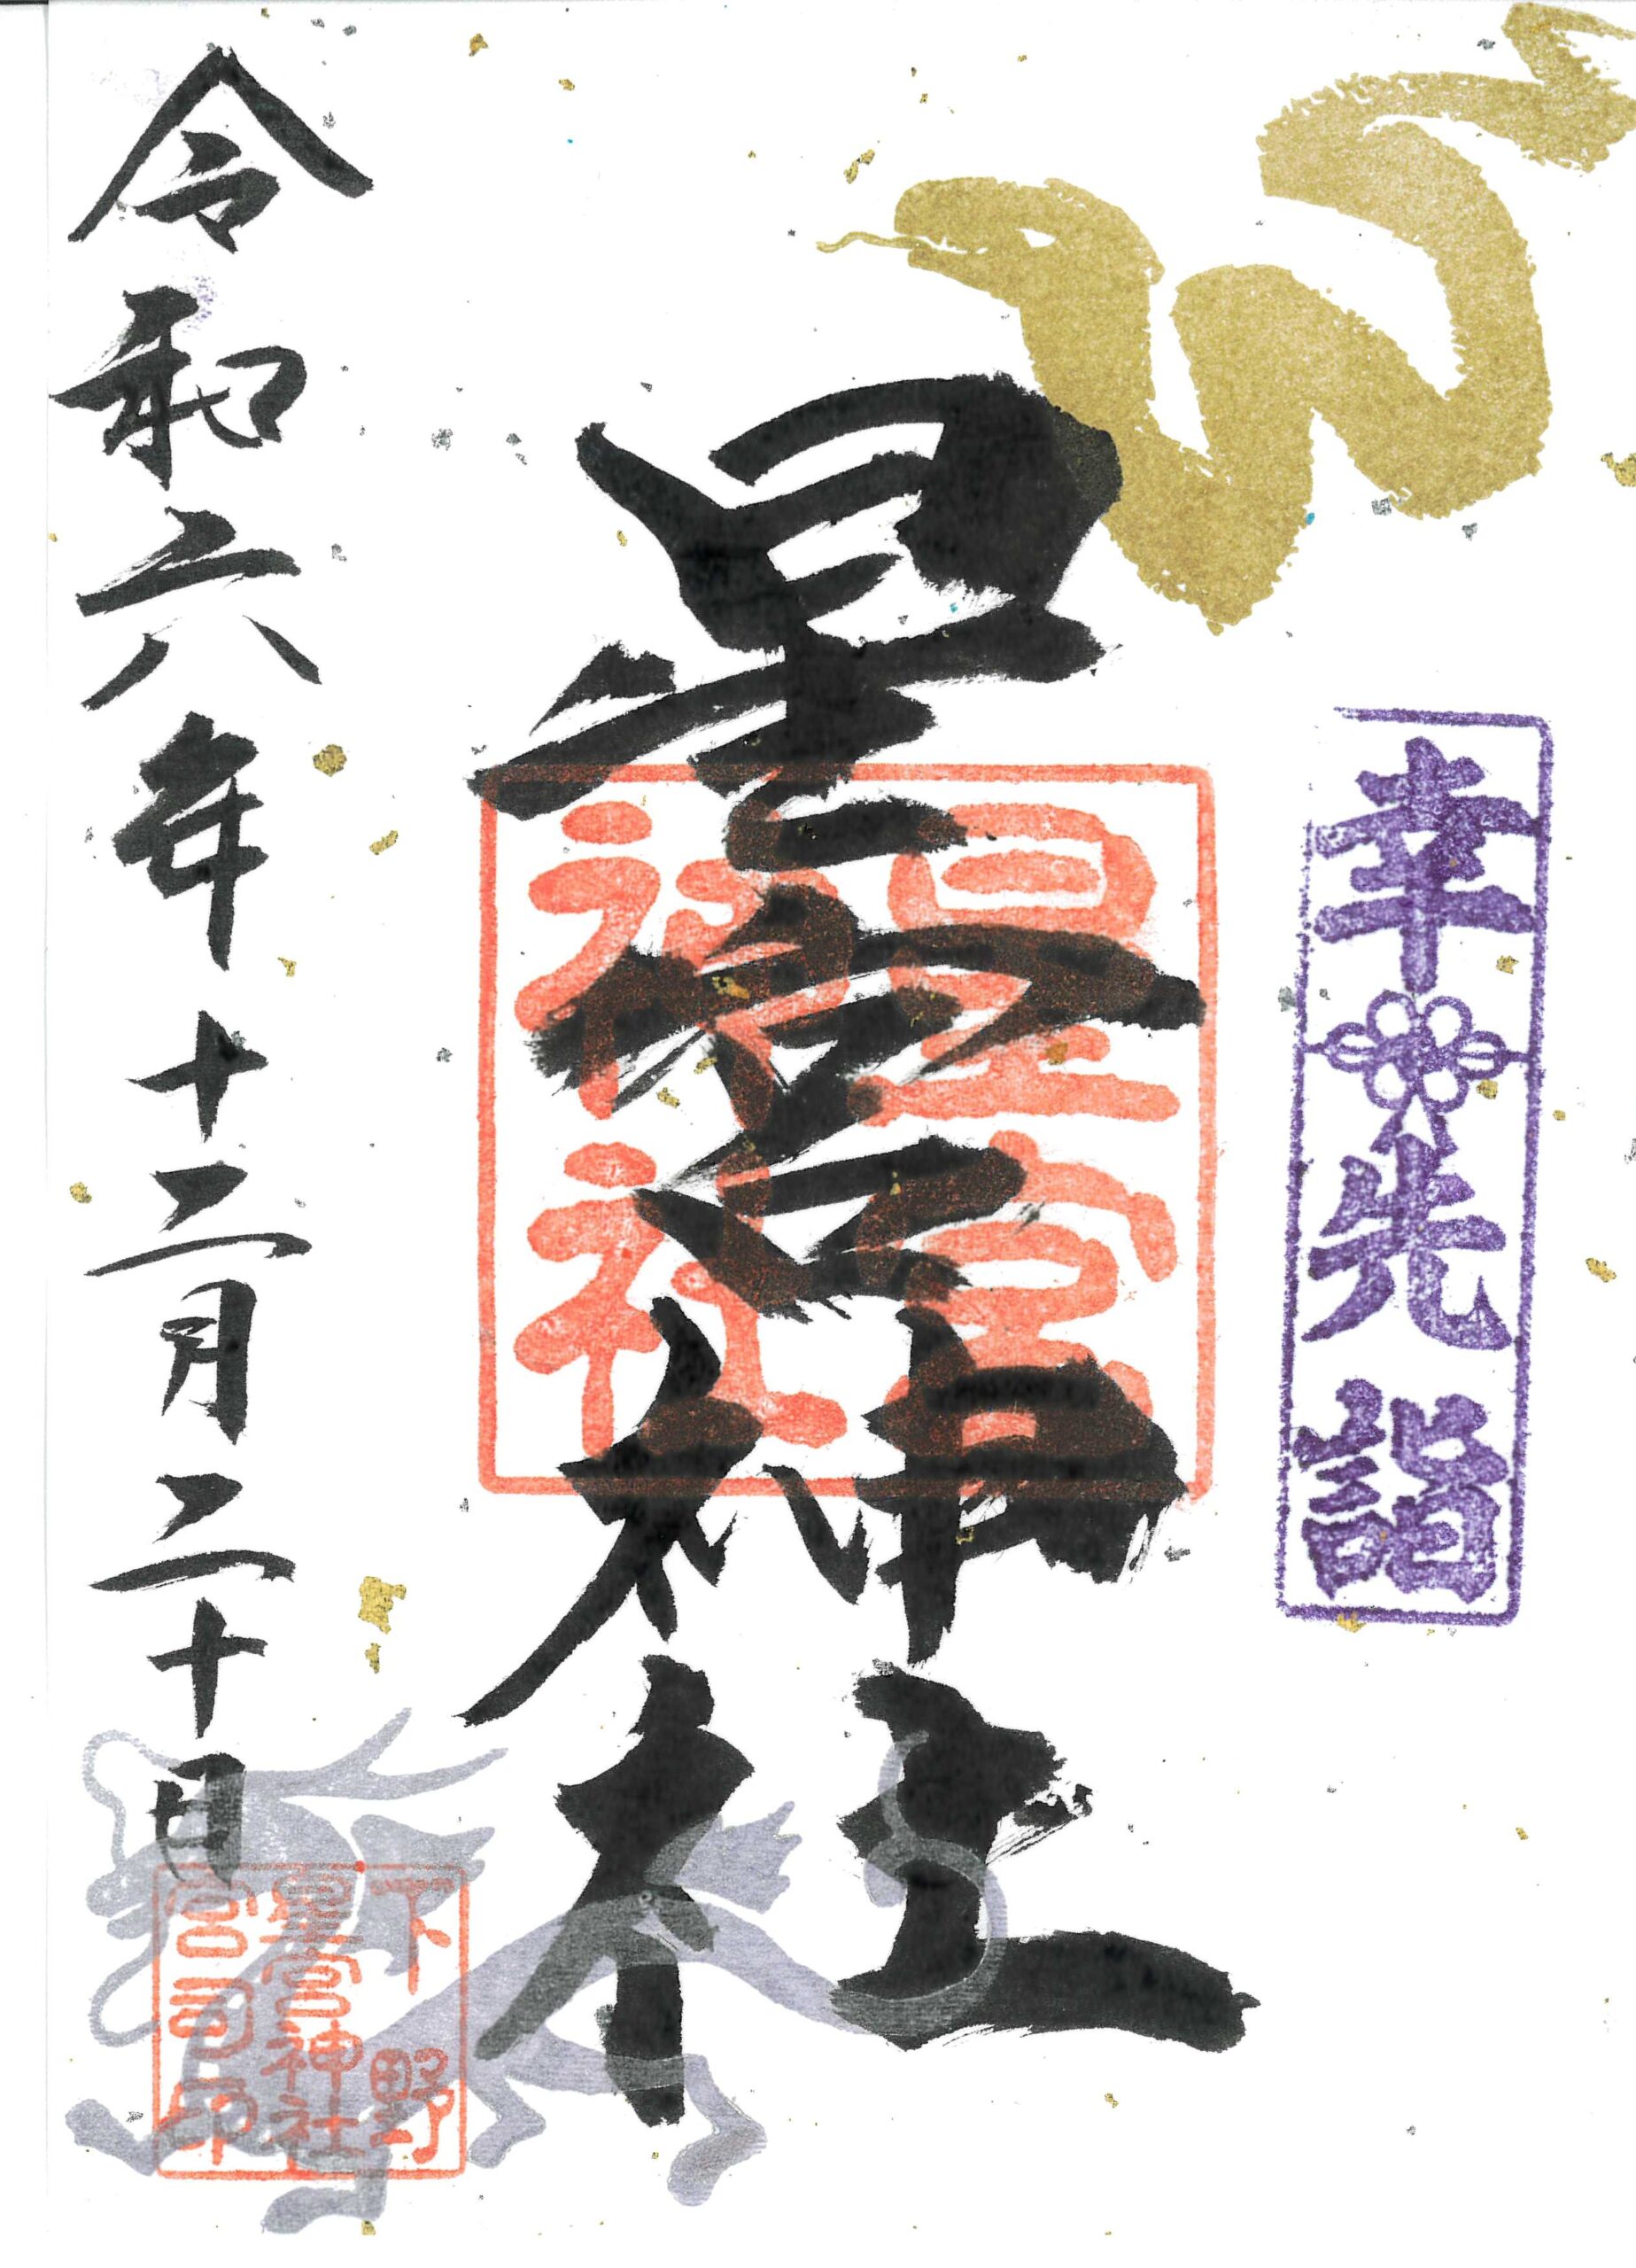 幸先詣
星宮神社
星宮
神社
令和六年十二月二十日
下野
星宮神社
宮司印